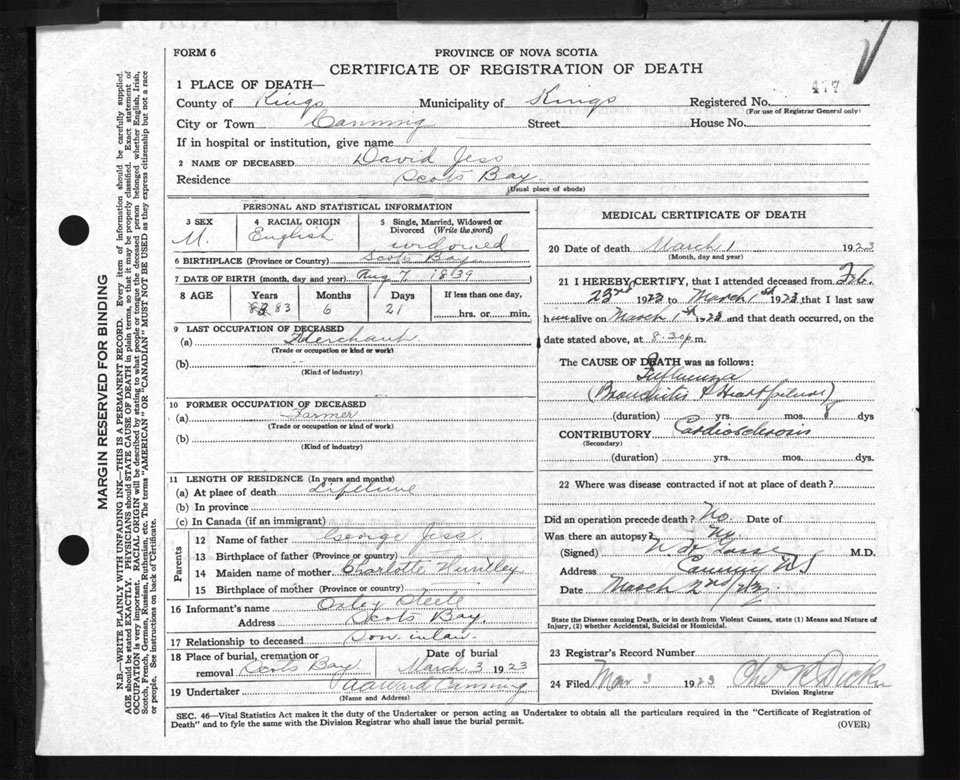 FORM 6
PROVINCE OF NOVA SCOTIA
CERTIFICATE OF REGISTRATION OF DEATH
1 PLACE OF DEATH—
County of Kings Municipality of Kings Registered No. 477
(For use of Registrar General only)
City or Town Canning Street House No.
If in hospital or institution, give name
2 NAME OF DECEASED David Jess
Residence Scots Bay.
(Usual place of abode)
PERSONAL AND STATISTICAL INFORMATION
3 SEX M.
4 RACIAL ORIGIN English
5 Single, Married, Widowed or Divorced (Write the word) widowed
6 BIRTHPLACE (Province or Country) Scots Bay
7 DATE OF BIRTH (month, day and year) Aug 7, 1839
8 AGE Years 83 Months 6 Days 21 If less than one day, hrs. or min.
9 LAST OCCUPATION OF DECEASED
(a) Merchant
(Trade or occupation or kind or work)
(b)
(Kind of industry)
10 FORMER OCCUPATION OF DECEASED
(a) Farmer
(Trade or occupation or kind of work)
(b)
(Kind of industry)
11 LENGTH OF RESIDENCE (In years and months)
(a) At place of death Lifetime
(b) In province
(c) In Canada (if an immigrant)
Parents
12 Name of father George Jess
13 Birthplace of father (Province or country)
14 Maiden name of mother Charlotte Huntley
15 Birthplace of mother (Province or country)
16 Informant's name Oxley Steele
Address Scots Bay.
17 Relationship to deceased son in law.
18 Place of burial, cremation or removal Scots Bay Date of burial March 3, 1923
19 Undertaker Ward Canning
(Name and Address)
MEDICAL CERTIFICATE OF DEATH
20 Date of death March 1 1923
(Month, day and year)
21 I HEREBY CERTIFY, that I attended deceased from Feb.
23rd 1923 to March 1st 1923 that I last saw
him alive on March 1st 1923 and that death occurred, on the
date stated above, at 8.30 p.m.
The CAUSE OF DEATH was as follows:
Influenza
(Bronchitis & Heart failure)
(duration) yrs. mos. 8 dys
CONTRIBUTORY Cardiosclerosis
(Secondary)
(duration) yrs. mos. dys.
22 Where was disease contracted if not at place of death?
Did an operation precede death? No. Date of
Was there an autopsy? No
(Signed) M.D.
Address Canning NS
Date March 2nd/23
State the Disease causing Death, or in death from Violent Causes, state (1) Means and Nature of
Injury, (2) whether Accidental, Suicidal or Homicidal.
23 Registrar's Record Number
24 Filed Mar 3 1923
Division Registrar
SEC. 46—Vital Statistics Act makes it the duty of the Undertaker or person acting as Undertaker to obtain all the particulars required in the "Certificate of Registration of
Death" and to fyle the same with the Division Registrar who shall issue the burial permit.
(OVER)
MARGIN RESERVED FOR BINDING
N.B.—WRITE PLAINLY WITH UNFADING INK—THIS IS A PERMANENT RECORD. Every item of information should be carefully supplied.
AGE should be stated EXACTLY. PHYSICIANS should STATE CAUSE OF DEATH in plain terms, so that it may be properly classified. Exact statement of
OCCUPATION is very important. RACIAL ORIGIN will be described by stating to what people or tongue the deceased person belonged whether English, Irish,
Scotch, French, German, Russian, Ruthenian, etc. The terms "AMERICAN" OR "CANADIAN" MUST NOT BE USED as they express citizenship but not a race
or people. See instructions on back of Certificate.